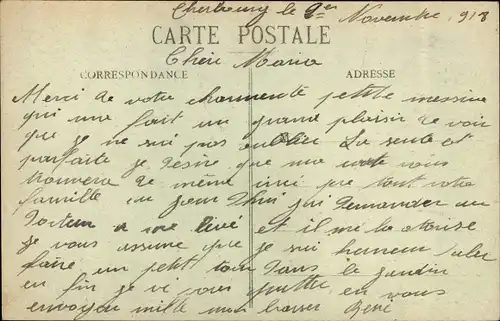 Cherbourg le 9er Novembre, 918
CARTE POSTALE
Cher Maria
CORRESPONDANCE
ADRESSE
Merci de votre charmente petite messive
qui me fait un grand plaisir de voir
que je ne sui pas oublier La sente et
parfaite je désire que ma vous
trouvera de même inci que tout votre
famille jai Demander au
Docteur a me levé et il mi la otorise
je vous assure que je sui heureux aler
faire un petit tour Dans le jardin
en fin je vé vous quitter en vous
envoyen mille baiser René